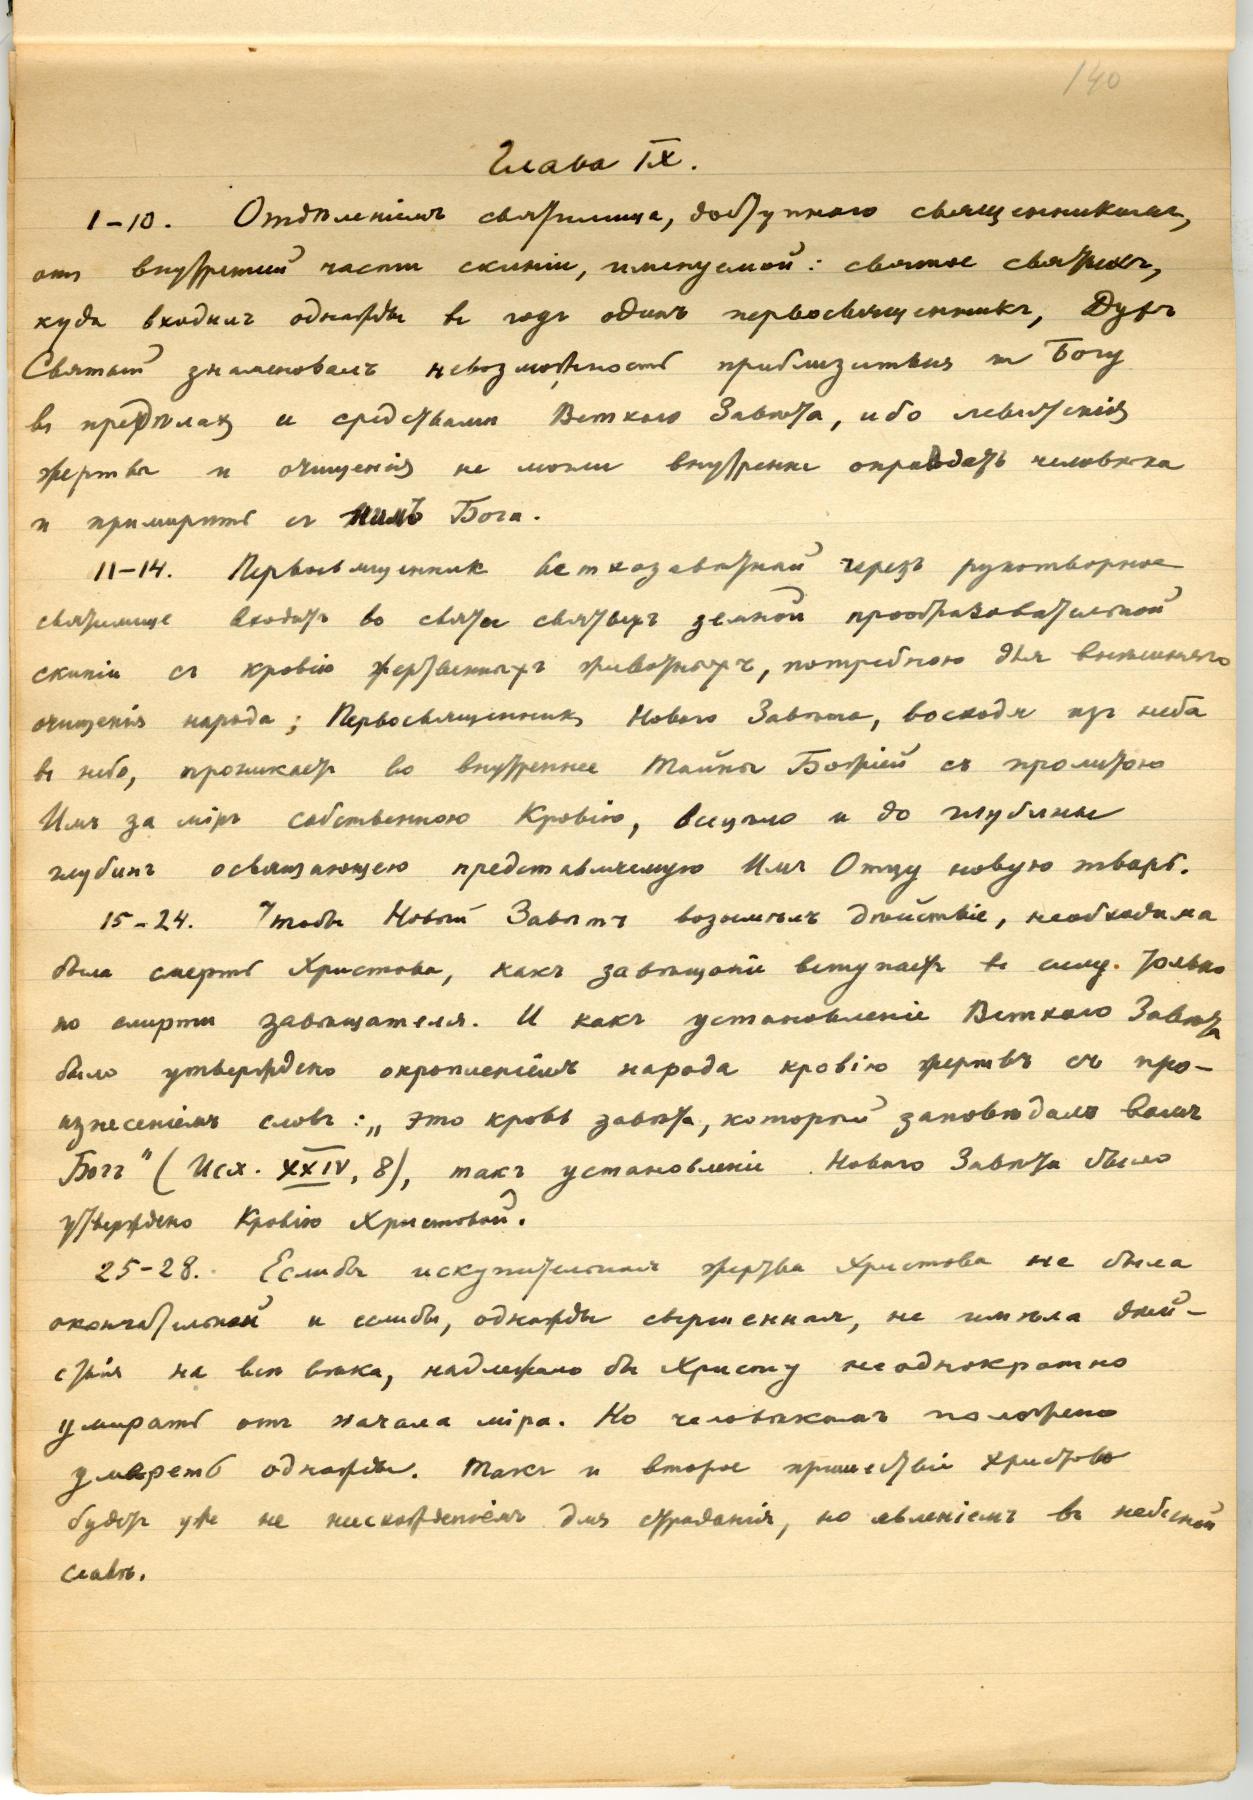 140
Глава IX.
1-10. Отдѣленіемъ святилища, доступнаго священникамъ,
отъ внутренней части скиніи, именуемой: святое святыхъ,
куда входилъ однажды въ годъ одинъ первосвященникъ, Духъ
Святый знаменовалъ невозможность приблизиться къ Богу
въ предѣлахъ и средствами Ветхаго Завѣта, ибо левитскія
жертвы и очищенія не могли внутренне оправдать человѣка
и примирить съ нимъ Бога.
11-14. Первосвященник ветхозавѣтный черезъ рукотворное
святилище входитъ во святая святыхъ земной прообразовательной
скиніи съ кровію жертвенныхъ животныхъ, потребною для внѣшняго
очищенія народа; Первосвященникъ Новаго Завѣта, восходя изъ неба
въ небо, проникаетъ во внутреннее Тайны Божіей съ пролитою
Имъ за міръ собственною Кровію, всецѣло и до глубины
глубинъ освящающею представляемую Имъ Отцу новую тварь.
15-24. Чтобы Новый Завѣтъ возымѣлъ дѣйствіе, необходима
была смерть Христова, какъ завѣщаніе вступаетъ въ силу только
по смерти завѣщателя. И какъ установленіе Ветхаго Завѣта
было утверждено окропленіемъ народа кровію жертвъ съ про-
изнесеніемъ словъ: „это кровь завѣта, который заповѣдалъ вамъ
Богъ" (Исх. XXIV, 8), такъ установленіе Новаго Завѣта было
утверждено Кровію Христовой.
25-28. Еслибы искупительная жертва Христова не была
окончательной и еслибы, однажды свершенная, не имѣла дѣй-
ствія на всѣ вѣка, надлежало бы Христу неоднократно
умирать отъ начала міра. Но человѣкамъ положено
умереть однажды. Такъ и второе пришествіе Христово
будетъ уже не нисхожденіемъ для страданія, но явленіемъ въ небесной
славѣ.